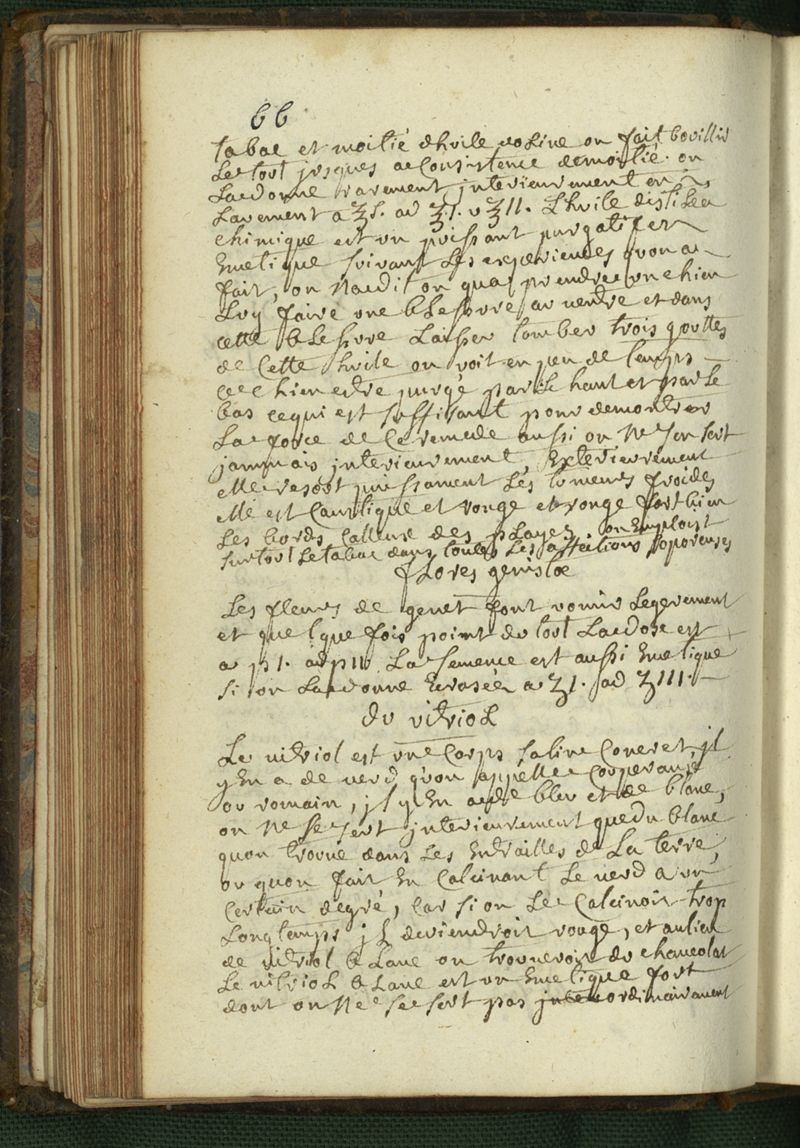 66
tabac et moitié dhuile rosine on fait bouillir
Le tout jusques a Consistence demoitié. on
La donne rarement interieurement en
Lavement a ʒs. ad ʒ1. v ʒ11. Lhuile distilée
chimique est un puissant purgatif et
Emetique suivant Les experiences quon a
fait, on Na dit on qua prendre un chien
Luy faire une blessure au ventre et dans
cette blessure Laisser tomber trois gouttes
de Cette huile on voit en peu de temps
ce chien estre purgé par Le haut et par Le
bas ce qui est suffisant pour demontrer
La force de Ce remede aussi on Ne sen sert
jammais interieurement, Exterieurement
elle resout puissament Les tumeurs froides
elle est Caustique et ronge et ronge fort bien
Les bords Calleux des playes, on Emploist
surtout Le tabac dans toutes Les affections soporeuses
flores genistœ
Les fleurs de genet font vomir Legerement
et quelque fois point du tout La dose est
a p1. ad p11. La semence est aussi Emetique
si on La donne Ecrasée a ʒ1. ad ʒ111.
du vitriol
Le vitriol est un Corps salin Concret, jl
y En a de verd qu'on appelle Couperause
ou romain, jl y En a de bleu et de blanc,
on Ne se sert interieurement que du blanc
quon trouve dans Les Entrailles de La terre,
ou quon fait En Calcinant Le verd a un
Certain degré, Car si on Le Calcinoit trop
Longtemps jl deviendroit rouge, et au lieu
de vitriol blanc on trouveroit du chancolat
Le vitriol blanc est un Emetique fort
dont on Ne se sert pas ordinairement